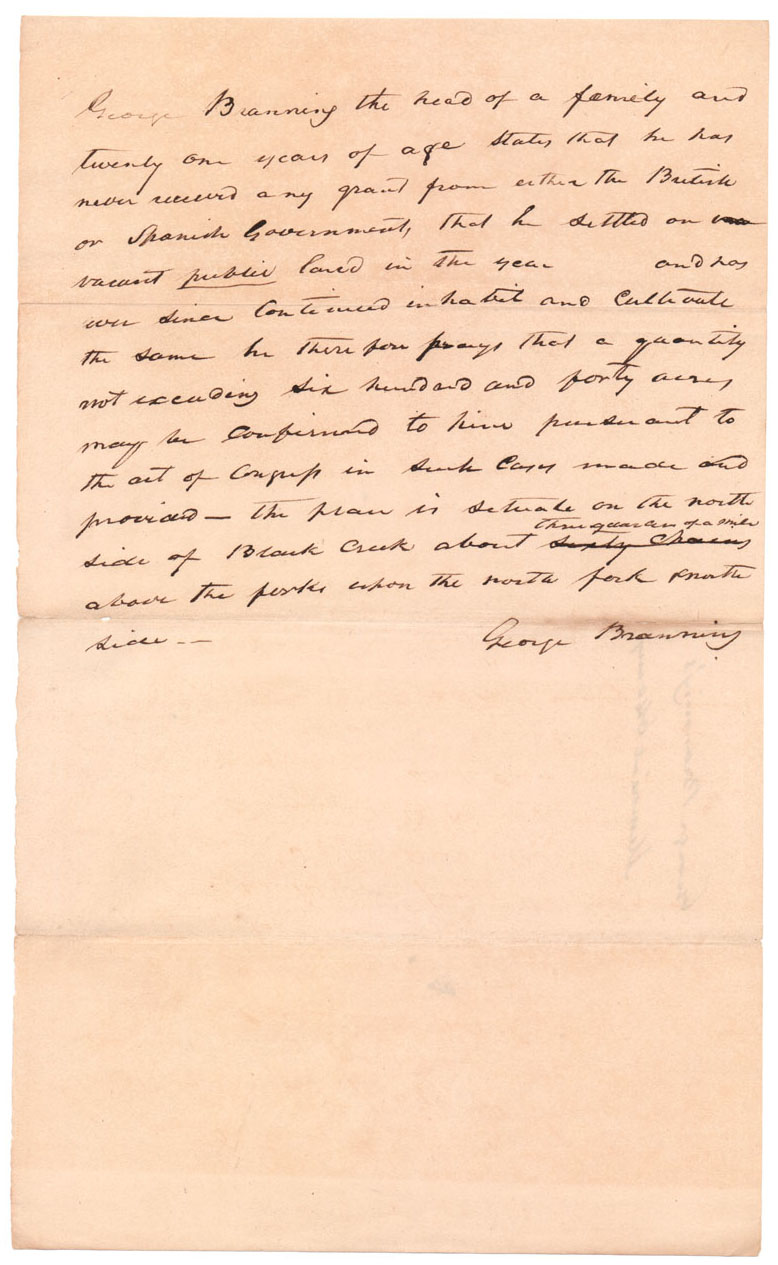 George Branning the head of a family and
twenty one years of age states that he has
never received any grant from either the British
or Spanish Government, that he settled on
vacant public land in the year and has
ever since Continued inhabit and Cultivate
the same he therefore prays that a quantity
not exceeding six hundred and forty acres
may be Confirmed to him pursuant to
the act of Congress in such Cases made and
provided — the place is situate on the north
three quarters of a mile
side of Black Creek about sixty Chains
above the forks upon the north fork & north
side —
George Branning